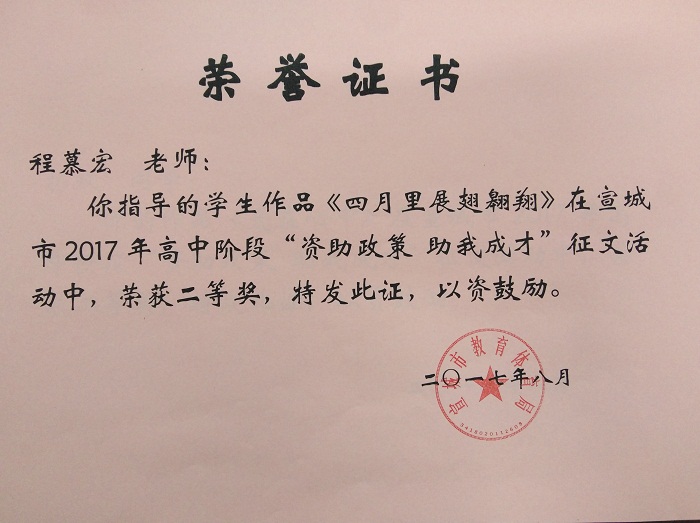 荣誉证书
程慕宏 老师：
你指导的学生作品《四月里展翅翱翔》在宣城
市2017年高中阶段“资助政策 助我成才”征文活
动中，荣获二等奖，特发此证，以资鼓励。
宣城市教育体育局
二〇一七年八月